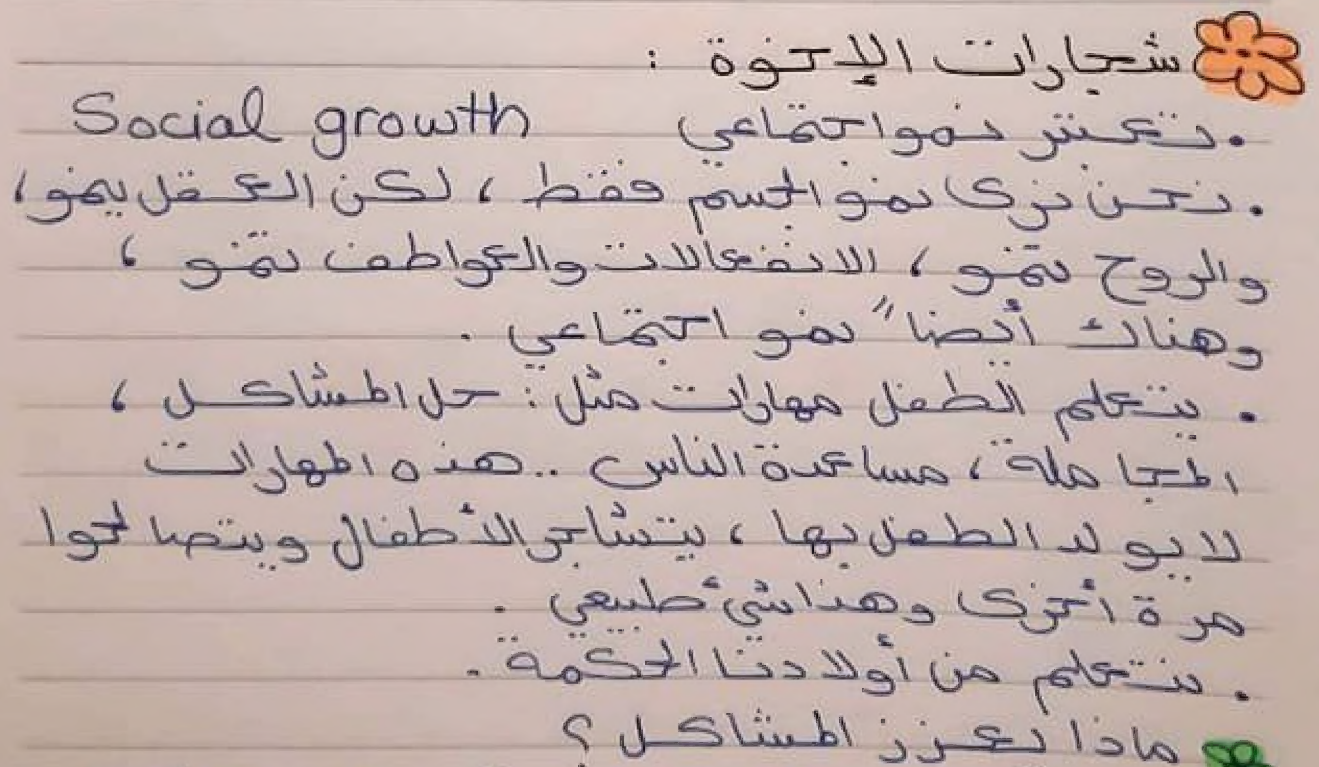 شجارات الإخوة :
. تعتبر نمو اجتماعي Social growth
. نحن نرى نمو الجسم فقط ، لكن العقل ينمو ،
والروح تنمو ، الانفعالات والعواطف تنمو ،
وهناك أيضاً نمو اجتماعي .
. يتعلم الطفل مهارات مثل : حل المشاكل ،
المجاملة ، مساعدة الناس .. هذه المهارات
لا يولد الطفل بها ، يتشاجر الأطفال ويتصالحوا
مرة أخرى وهذا شيء طبيعي .
. نتعلم من أولادنا الحكمة .
ماذا يعزز المشاكل ؟